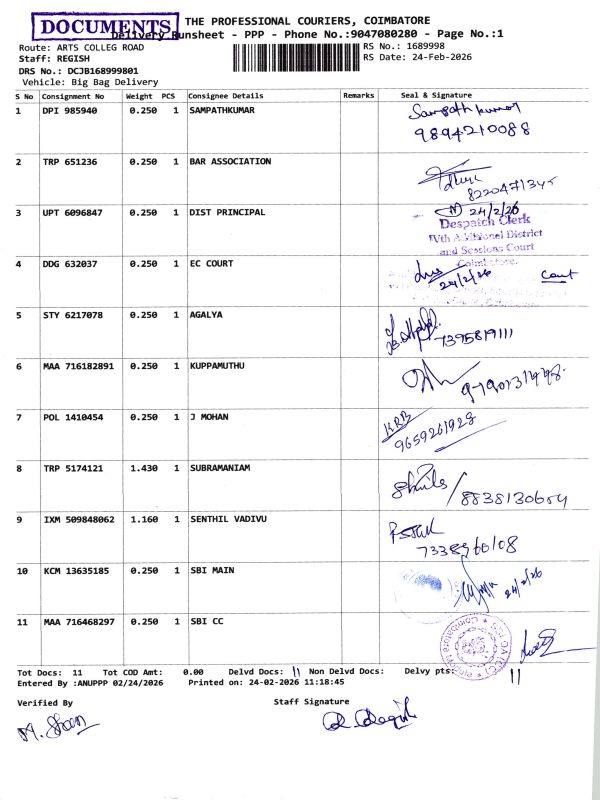 DOCUMENTS
THE PROFESSIONAL COURIERS, COIMBATORE
Delivery Runsheet - PPP - Phone No.:9047080280 - Page No.:1
Route: ARTS COLLEG ROAD
RS No.: 1689998
Staff: REGISH
RS Date: 24-Feb-2026
DRS No.: DCJB168999801
Vehicle: Big Bag Delivery
S No Consignment No Weight PCS Consignee Details Remarks Seal & Signature
1 DPI 985940 0.250 1 SAMPATHKUMAR Sampath kumar
9894210088
2 TRP 651236 0.250 1 BAR ASSOCIATION
8220471345
3 UPT 6096847 0.250 1 DIST PRINCIPAL 24/2/26
Despatch Clerk
IVth Additional District
and Sessions Court
Coimbatore.
4 DDG 632037 0.250 1 EC COURT
24/2/26 Court
5 STY 6217078 0.250 1 AGALYA
7395819111
6 MAA 716182891 0.250 1 KUPPAMUTHU
7 POL 1410454 0.250 1 J MOHAN KRB
9659261928
8 TRP 5174121 1.430 1 SUBRAMANIAM
8838130654
9 IXM 509848062 1.160 1 SENTHIL VADIVU
10 KCM 13635185 0.250 1 SBI MAIN 24/2/26
11 MAA 716468297 0.250 1 SBI CC
Tot Docs: 11 Tot COD Amt: 0.00 Delvd Docs: 11 Non Delvd Docs: Delvy pts: 11
Entered By :ANUPPP 02/24/2026 Printed on: 24-02-2026 11:18:45
Verified By Staff Signature